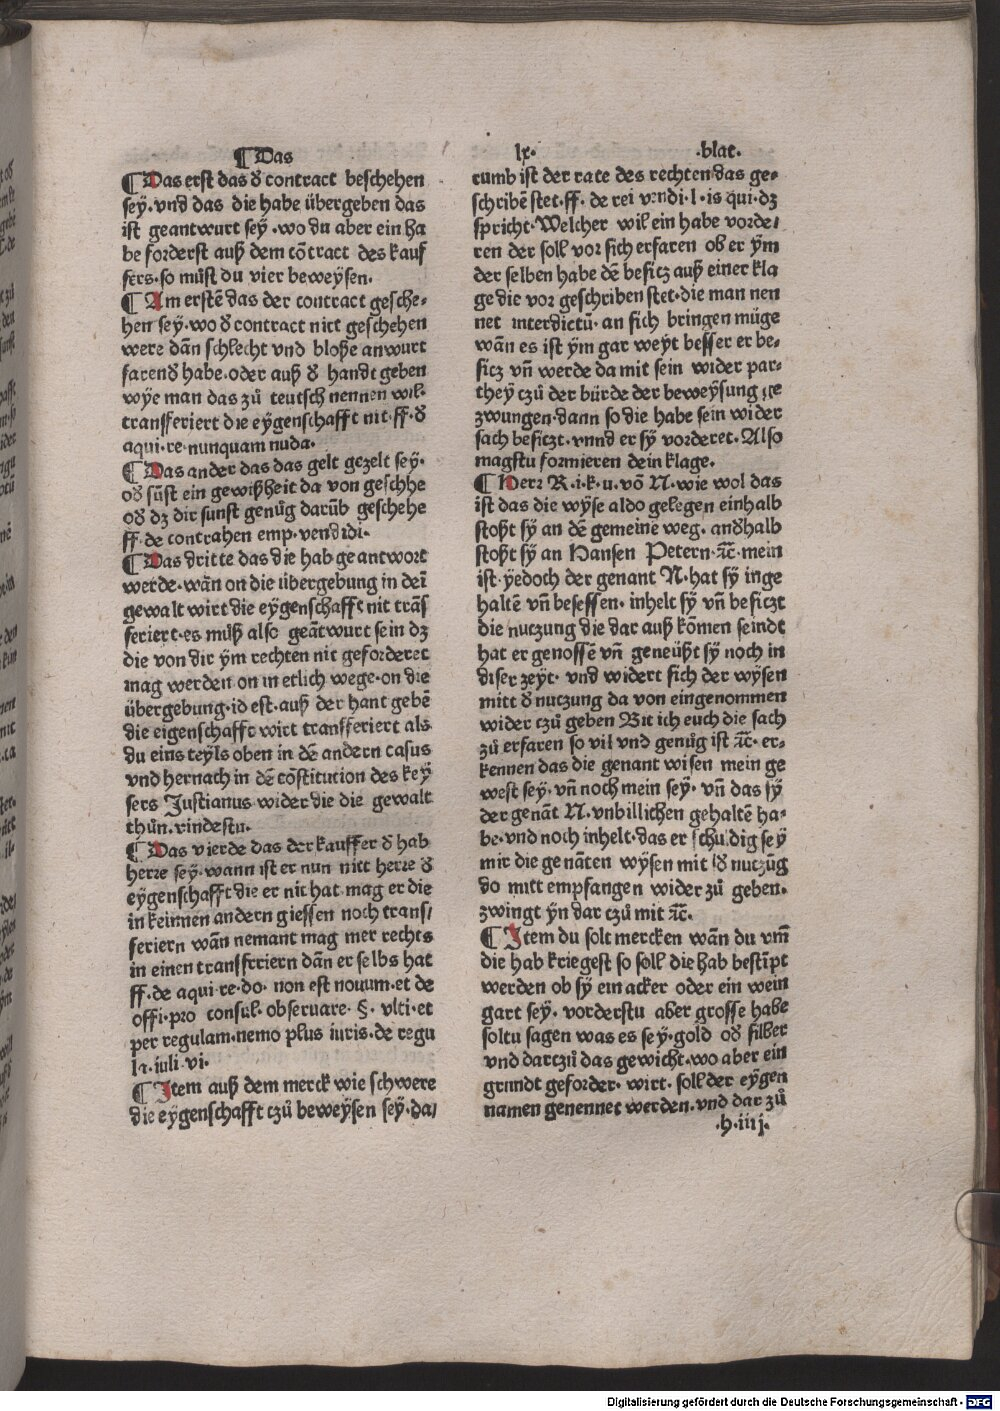 ¶ Das lx. .blat.
¶ Das erst das d̕ contract beschehen
sey. vnd das die habe übergeben das
ist geantwurt sey . wo du aber ein ha
be forderst auß dem cōtract des kauf
fers. so můst du vier beweysen.
¶ Am erstē das der contract gesche-
hen sey. wo d̕ contract nict geschehen
were dān schlecht vnd bloße anwurt
farend̕ habe. oder auß d̕ handt geben
wye man das zů teutsch nennen wil.
transferiert die eygenschafft nit. ff. d̕
aqui. re. nunquam nuda.
¶ Das ander das das gelt gezelt sey.
od̕ sůst ein gewißheit da von geschhe
od̕ dz dir sunst genůg darūb geschehe
ff. de contrahen emp. vendidi.
¶ Das dritte das die hab geantwort
werde. wān on die übergebung in deī
gewalt wirt die eygenschafft nit trās
feriert. es můß also geātwurt sein dz
die von dir ym rechten nit geforderet
mag werden on in etlich wege. on die
übergebung. id est. auß der hant gebē
die eigenschafft wirt transferiert als
du eins teyls oben in dē andern casus
vnd hernach in dē cōstitution des key
sers Justianus wider die die gewalt
thůn. vindestu.
¶ Das vierde das der kauffer d̕ hab
herre sey. wann ist er nun nict herre d̕
eygenschafft die er nit hat mag er die
in keinnen andern giessen noch trans/
feriern wān nemant mag mer rechts
in einen transfrriern dān er selbs hat
ff. de aqui. re. do. non est nouum. et de
offi. pro consul. obseruare. §. vlti. et
per regulam. nemo plus iuris. de regu
la. iuli. vi.
¶ Item auß dem merck wie schwere
die eygenschafft tzů beweysen sey. da/
rumb ist der rate des rechten das ge-
schribē stet. ff. de rei vendi. l. is qui. dz
spricht. Welcher wil ein habe vorde/
ren der soll vor sich erfaren ob er ym
der selben habe dē besitz auß einer kla
ge die vor geschriben stet. die man nen
net interdictū. an sich bringen müge
wān es ist ym gar weyt besser er be-
sitz vn̄ werde da mit sein wider par-
they czů der bürde der beweysung ge
zwungen. dann so die habe sein wider
sach besitzt. vnnd er sy vorderet. Also
magstu formieren dein klage.
¶ Herr R. i. k. u. vō N. wie wol das
ist das die wyse aldo gelegen einhalb
stoßt sy an dē gemeine weg. and̕halb
stoßt sy an Hansen Petern. ⁊c̄. mein
ist. yedoch der genant N. hat sy inge
haltē vn̄ besessen. inhelt sy vn̄ besitzt
die nutzung die dar auß kōmen seindt
hat er genossē vn̄ geneüßt sy noch in
diser zeyt. vnd widert sich der wysen
mitt d̕ nutzung da von eingenommen
wider czů geben Bit ich euch die sach
zů erfaren so vil vnd genůg ist ⁊c̄. er-
kennen das die genant wisen mein ge
west sey. vn̄ noch mein sey. vn̄ das sy
der genāt N. vnbillichen gehaltē ha-
be. vnd noch inhelt. das er schuldig sey
mir die genāten wysen mit d̕ nutzūg
do mitt empfangen wider zů geben.
zwingt yn dar czů mit ⁊c̄.
¶ Item du solt mercken wān du vm̄
die hab kriegest so soll die hab bestīpt
werden ob sy ein acker oder ein wein
gart sey. vorderstu aber grosse habe
soltu sagen was es sey. gold od̕ silber
vnd darczů das gewicht. wo aber ein
grundt geforder. wirt. soll der eygen
namen genennet werden. vnd dar zů
.h. iiij.
Digitalisierung gefördert durch die Deutsche Forschungsgemeinschaft - DFG